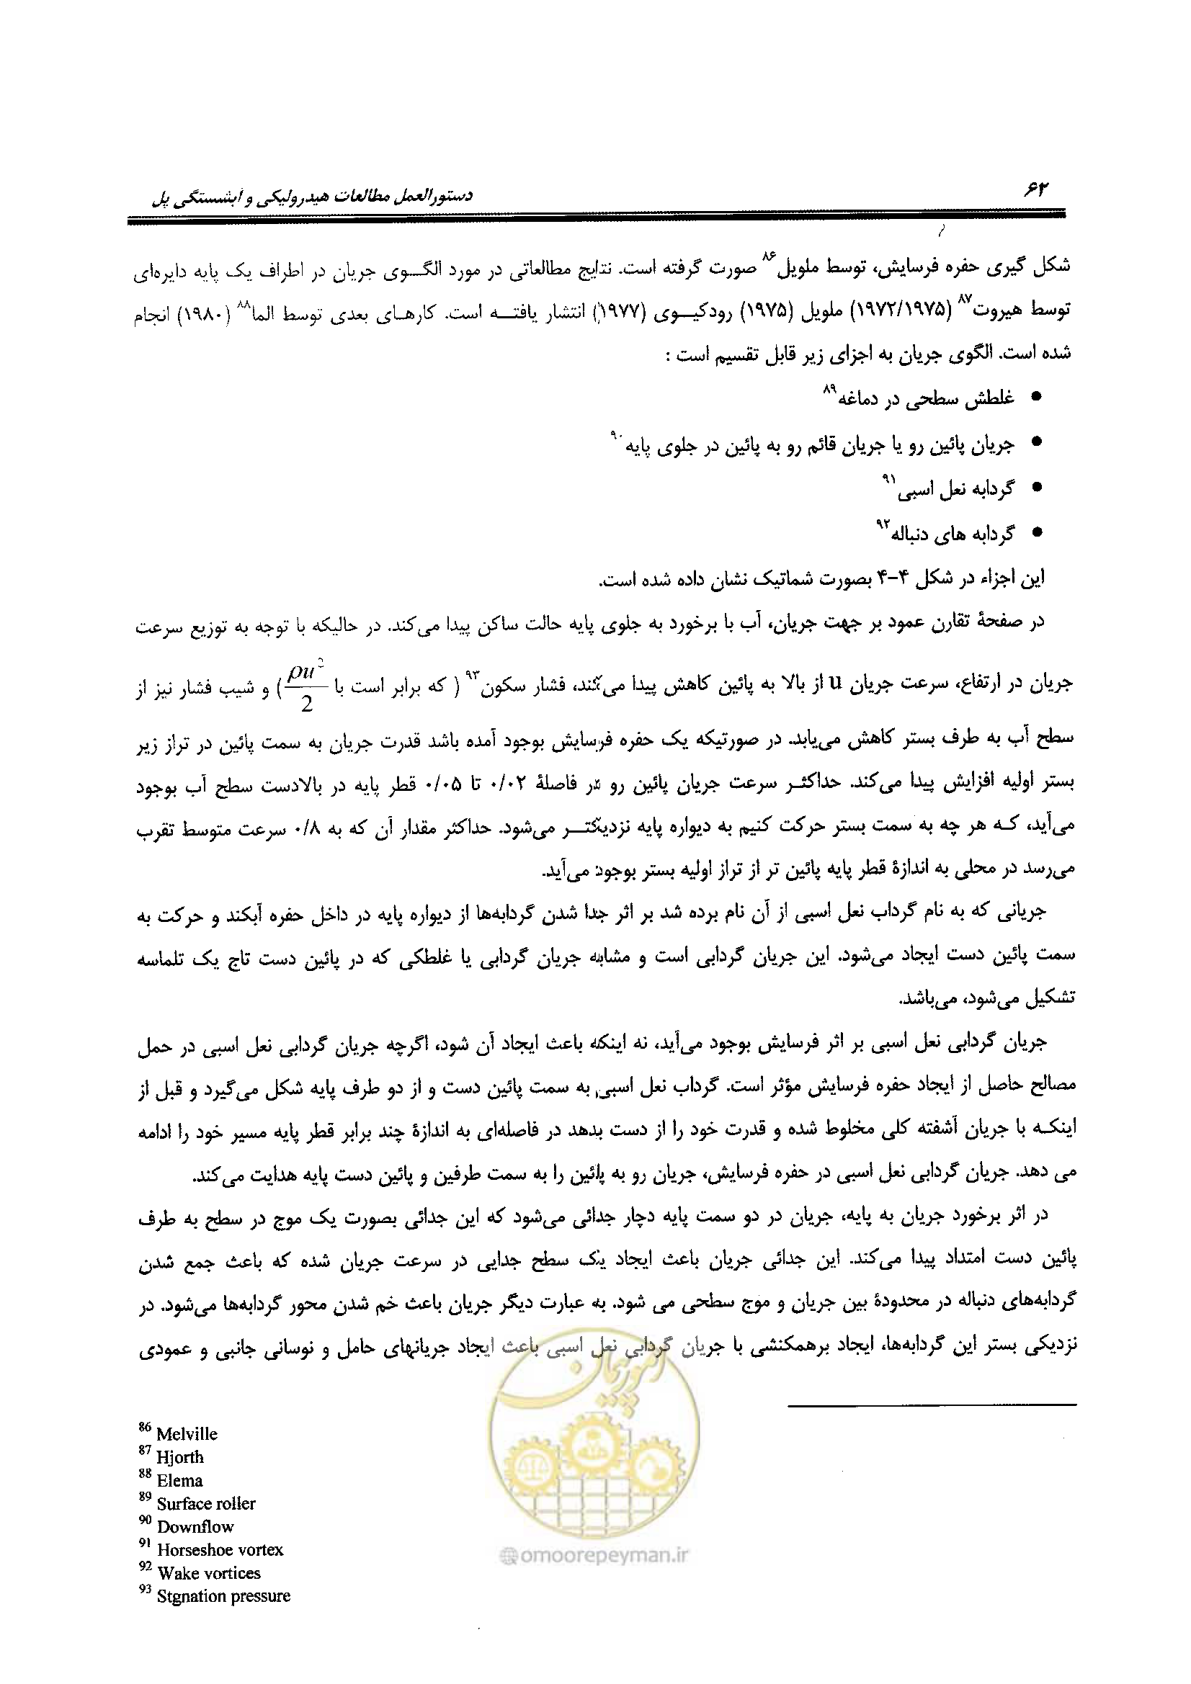 ۶۲
دستورالعمل مطالعات هیدرولیکی و آبشستگی پل
شکل گیری حفره فرسایش، توسط ملویل۸۶ صورت گرفته است. نتایج مطالعاتی در مورد الگوی جریان در اطراف یک پایه دایره‌ای
توسط هیروت۸۷ (۱۹۷۲/۱۹۷۵) ملویل (۱۹۷۵) رودکیوی (۱۹۷۷) انتشار یافته است. کارهای بعدی توسط الما۸۸ (۱۹۸۰) انجام
شده است. الگوی جریان به اجزای زیر قابل تقسیم است :
● غلطش سطحی در دماغه۸۹
● جریان پائین رو یا جریان قائم رو به پائین در جلوی پایه۹۰
● گردابه نعل اسبی۹۱
● گردابه های دنباله۹۲
این اجزاء در شکل ۴-۴ بصورت شماتیک نشان داده شده است.
در صفحهٔ تقارن عمود بر جهت جریان، آب با برخورد به جلوی پایه حالت ساکن پیدا می‌کند. در حالیکه با توجه به توزیع سرعت
جریان در ارتفاع، سرعت جریان u از بالا به پائین کاهش پیدا می‌کند، فشار سکون۹۳ ( که برابر است با ρu²/2) و شیب فشار نیز از
سطح آب به طرف بستر کاهش می‌یابد. در صورتیکه یک حفره فرسایش بوجود آمده باشد قدرت جریان به سمت پائین در تراز زیر
بستر اولیه افزایش پیدا می‌کند. حداکثر سرعت جریان پائین رو در فاصلهٔ ۰/۰۲ تا ۰/۰۵ قطر پایه در بالادست سطح آب بوجود
می‌آید، که هر چه به سمت بستر حرکت کنیم به دیواره پایه نزدیکتر می‌شود. حداکثر مقدار آن که به ۰/۸ سرعت متوسط تقرب
می‌رسد در محلی به اندازهٔ قطر پایه پائین تر از تراز اولیه بستر بوجود می‌آید.
جریانی که به نام گرداب نعل اسبی از آن نام برده شد بر اثر جدا شدن گردابه‌ها از دیواره پایه در داخل حفره آبکند و حرکت به
سمت پائین دست ایجاد می‌شود. این جریان گردابی است و مشابه جریان گردابی یا غلطکی که در پائین دست تاج یک تلماسه
تشکیل می‌شود، می‌باشد.
جریان گردابی نعل اسبی بر اثر فرسایش بوجود می‌آید، نه اینکه باعث ایجاد آن شود، اگرچه جریان گردابی نعل اسبی در حمل
مصالح حاصل از ایجاد حفره فرسایش مؤثر است. گرداب نعل اسبی به سمت پائین دست و از دو طرف پایه شکل می‌گیرد و قبل از
اینکه با جریان آشفته کلی مخلوط شده و قدرت خود را از دست بدهد در فاصله‌ای به اندازهٔ چند برابر قطر پایه مسیر خود را ادامه
می دهد. جریان گردابی نعل اسبی در حفره فرسایش، جریان رو به پائین را به سمت طرفین و پائین دست پایه هدایت می‌کند.
در اثر برخورد جریان به پایه، جریان در دو سمت پایه دچار جدائی می‌شود که این جدائی بصورت یک موج در سطح به طرف
پائین دست امتداد پیدا می‌کند. این جدائی جریان باعث ایجاد یک سطح جدایی در سرعت جریان شده که باعث جمع شدن
گردابه‌های دنباله در محدودهٔ بین جریان و موج سطحی می شود. به عبارت دیگر جریان باعث خم شدن محور گردابه‌ها می‌شود. در
نزدیکی بستر این گردابه‌ها، ایجاد برهمکنشی با جریان گردابی نعل اسبی باعث ایجاد جریانهای حامل و نوسانی جانبی و عمودی
86 Melville
87 Hjorth
88 Elema
89 Surface roller
90 Downflow
91 Horseshoe vortex
92 Wake vortices
93 Stgnation pressure
امورپیمان
@omoorepeyman.ir